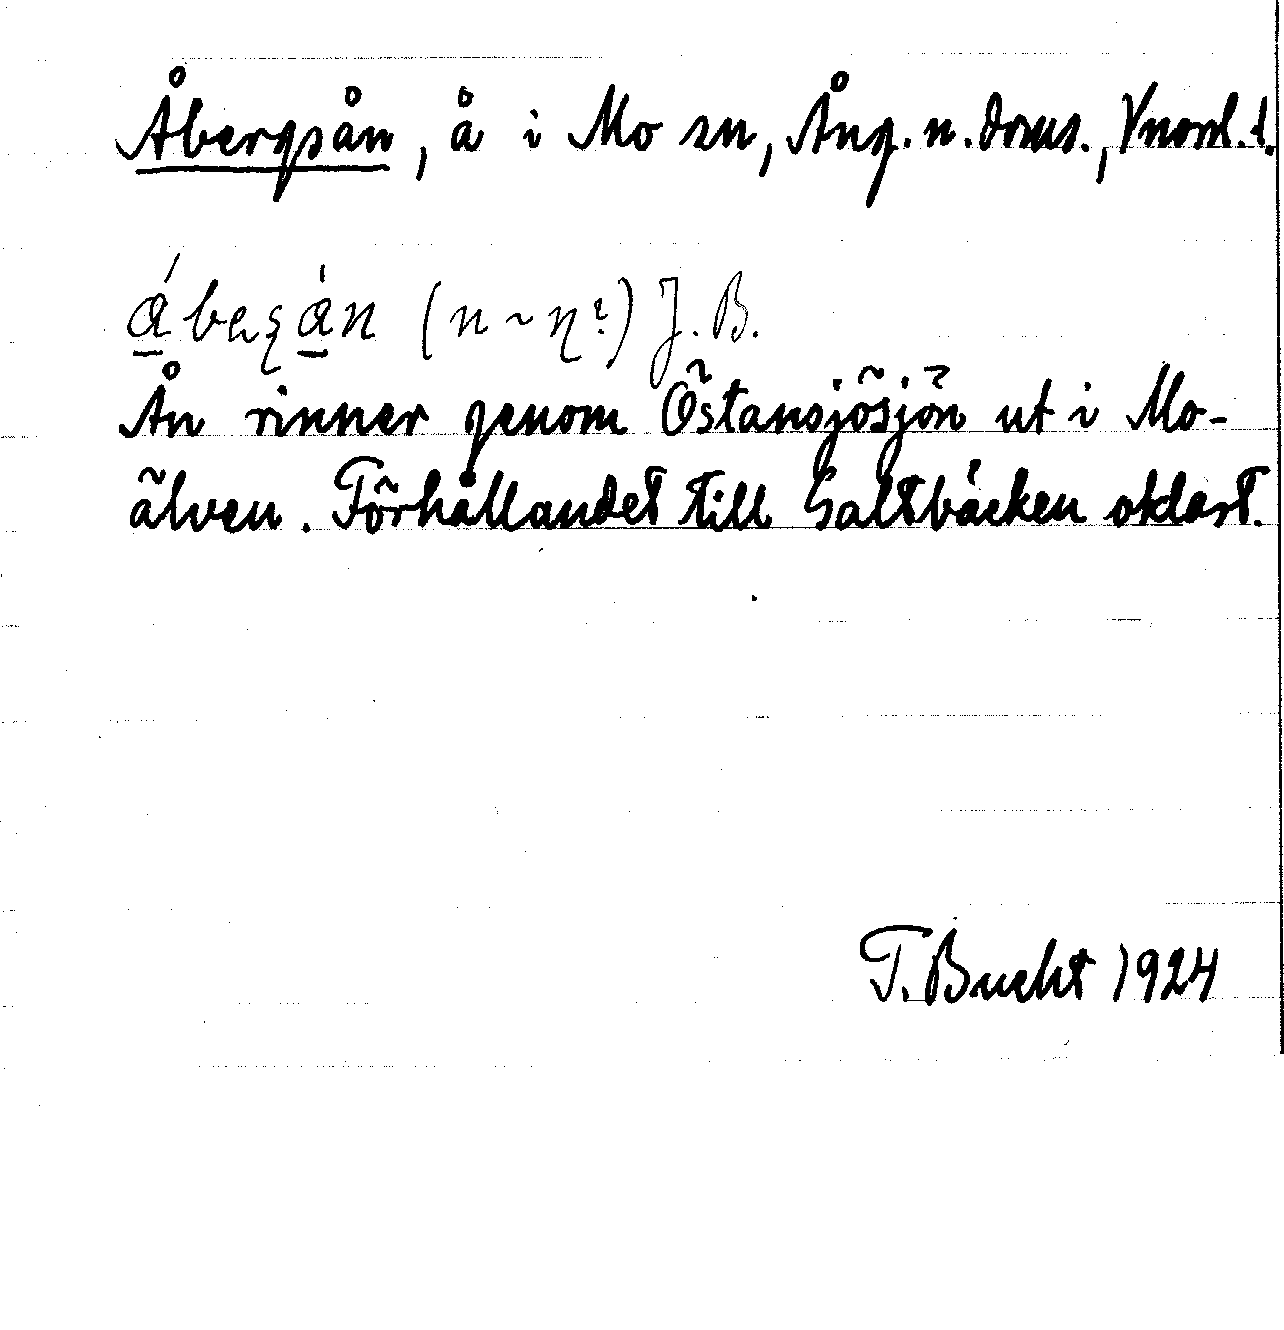 Åbergsån, å i Mo sn, Ång. n. doms., Vnorrl. l.
(n ~ ṇ?) J. B.
Ån rinner genom Östansjösjön ut i Mo-
älven. Förhållandet till Saltbäcken oklart.
T. Bucht 1924